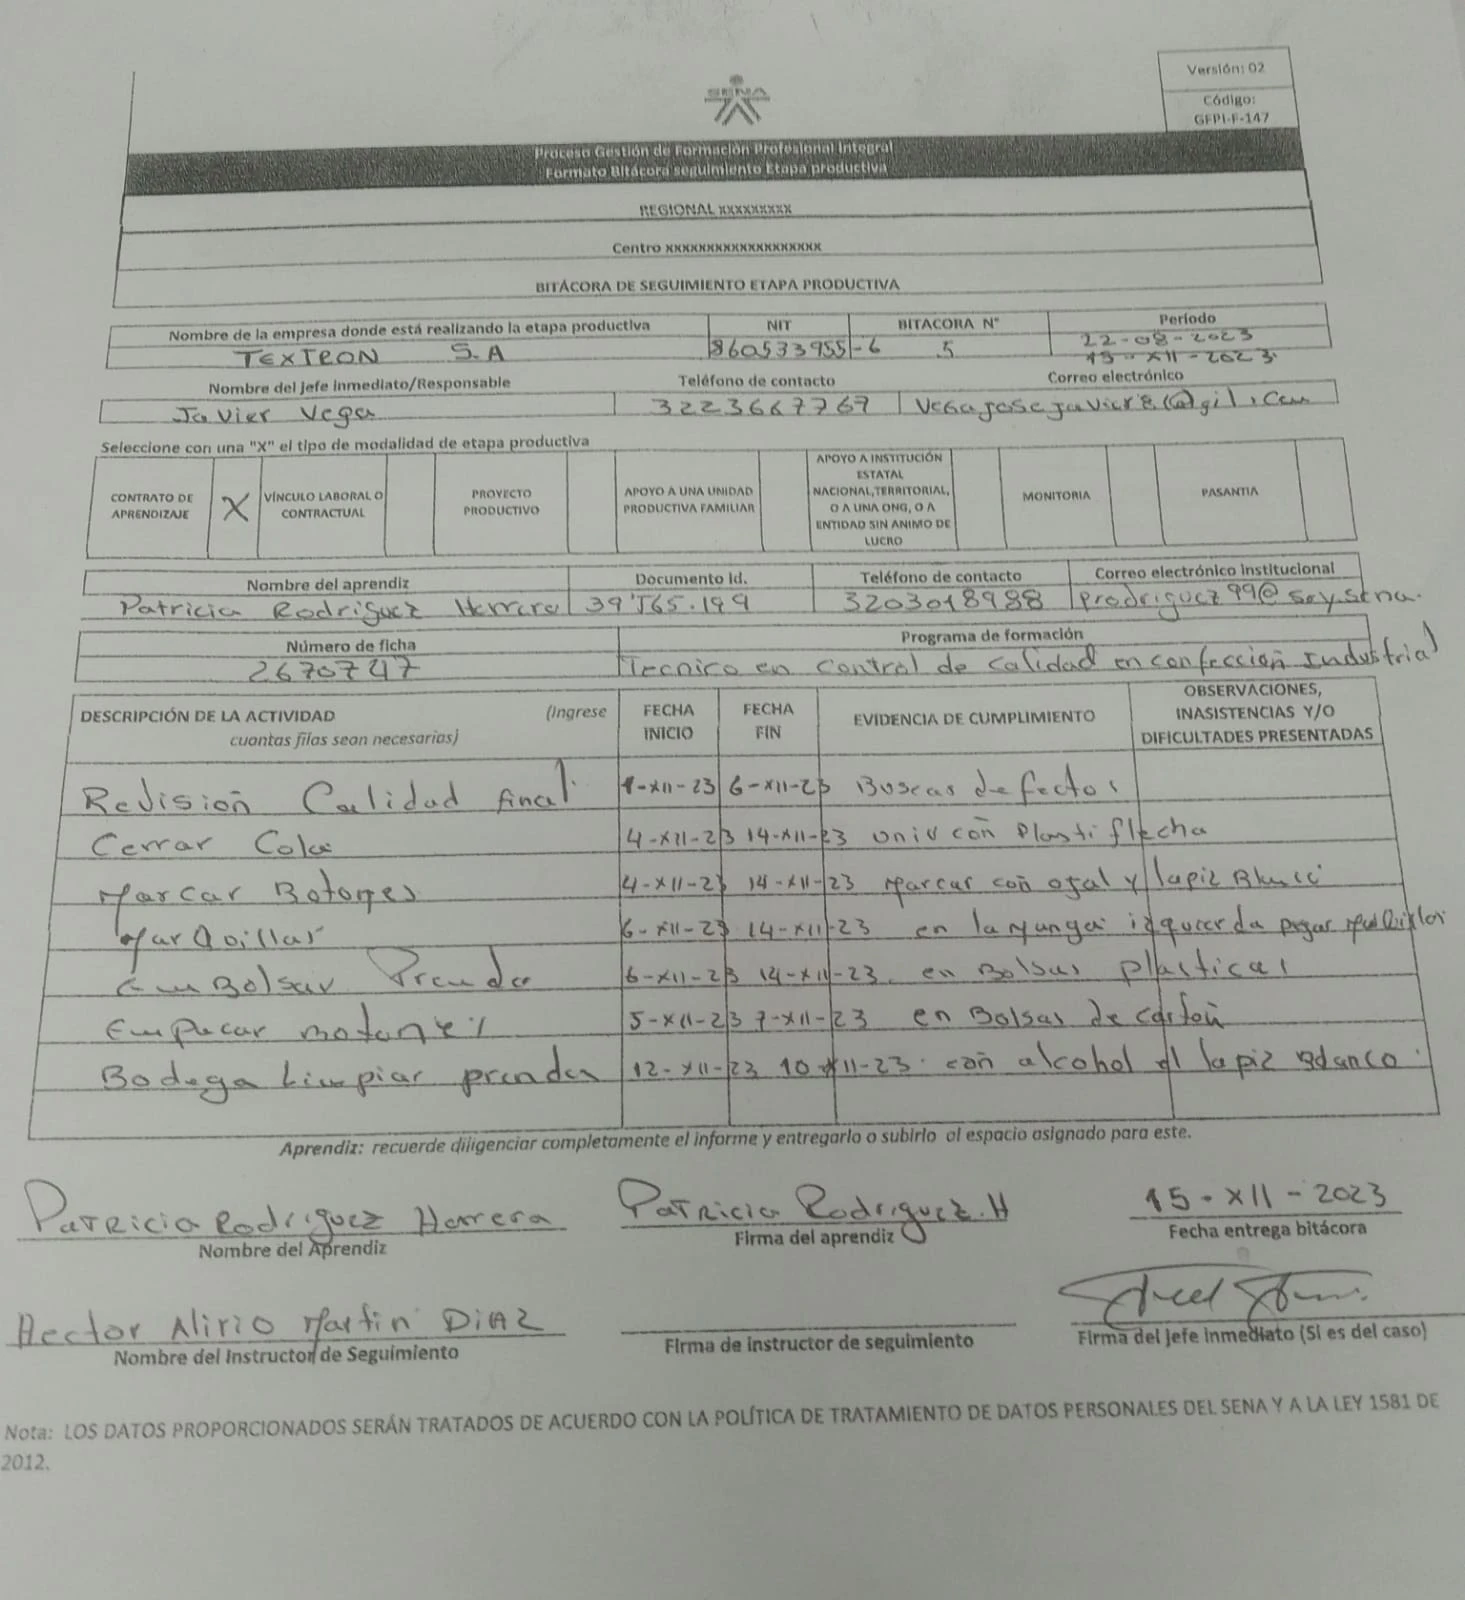 SENA
Versión: 02
Código:
GFPI-F-147
Proceso Gestión de Formación Profesional Integral
Formato Bitácora seguimiento Etapa productiva
REGIONAL xxxxxxxxx
Centro xxxxxxxxxxxxxxxxxxx
BITÁCORA DE SEGUIMIENTO ETAPA PRODUCTIVA
Nombre de la empresa donde está realizando la etapa productiva NIT BITACORA N° Período
TEXTRON S.A 860533955-6 5 22-08-2023
15-XII-2023
Nombre del jefe inmediato/Responsable Teléfono de contacto Correo electrónico
Javier Vega 3223667767
Seleccione con una "X" el tipo de modalidad de etapa productiva
CONTRATO DE APRENDIZAJE X VÍNCULO LABORAL O CONTRACTUAL PROYECTO PRODUCTIVO APOYO A UNA UNIDAD PRODUCTIVA FAMILIAR APOYO A INSTITUCIÓN ESTATAL NACIONAL, TERRITORIAL, O A UNA ONG, O A ENTIDAD SIN ANIMO DE LUCRO MONITORIA PASANTIA
Nombre del aprendiz Documento Id. Teléfono de contacto Correo electrónico institucional
Patricia Rodriguez Herrera 39'565.199 3203018988 prodriguez99@soysena.
Número de ficha Programa de formación
2670747 Tecnico en Control de Calidad en confección Industrial
DESCRIPCIÓN DE LA ACTIVIDAD (Ingrese cuantas filas sean necesarias) FECHA INICIO FECHA FIN EVIDENCIA DE CUMPLIMIENTO OBSERVACIONES, INASISTENCIAS Y/O DIFICULTADES PRESENTADAS
Revisioñ Calidad final. 1-XII-23 6-XII-23 Buscas defectos
Cerrar Cola 4-XII-23 14-XII-23 coñ Plastiflecha
Marcar Botones 4-XII-23 14-XII-23 Marcar coñ ojal y lapiz
Marquillas 6-XII-23 14-XII-23 en la manga izquierda pegar
EmBolsar Prenda 6-XII-23 14-XII-23. en Bolsas plasticas
Empacar Botones 5-XII-23 7-XII-23 en Bolsas de cartoñ
Bodega Limpiar prendas 12-XII-23 10-XII-23. coñ alcohol el lapiz Blanco.
Aprendiz: recuerde diligenciar completamente el informe y entregarlo o subirlo al espacio asignado para este.
Patricia Rodriguez Herrera Patricia Rodriguez.H 15-XII-2023
Nombre del Aprendiz Firma del aprendiz Fecha entrega bitácora
Hector Alirio Martin DiAZ
Nombre del Instructor de Seguimiento Firma de instructor de seguimiento Firma del jefe inmediato (Si es del caso)
Nota: LOS DATOS PROPORCIONADOS SERÁN TRATADOS DE ACUERDO CON LA POLÍTICA DE TRATAMIENTO DE DATOS PERSONALES DEL SENA Y A LA LEY 1581 DE
2012.